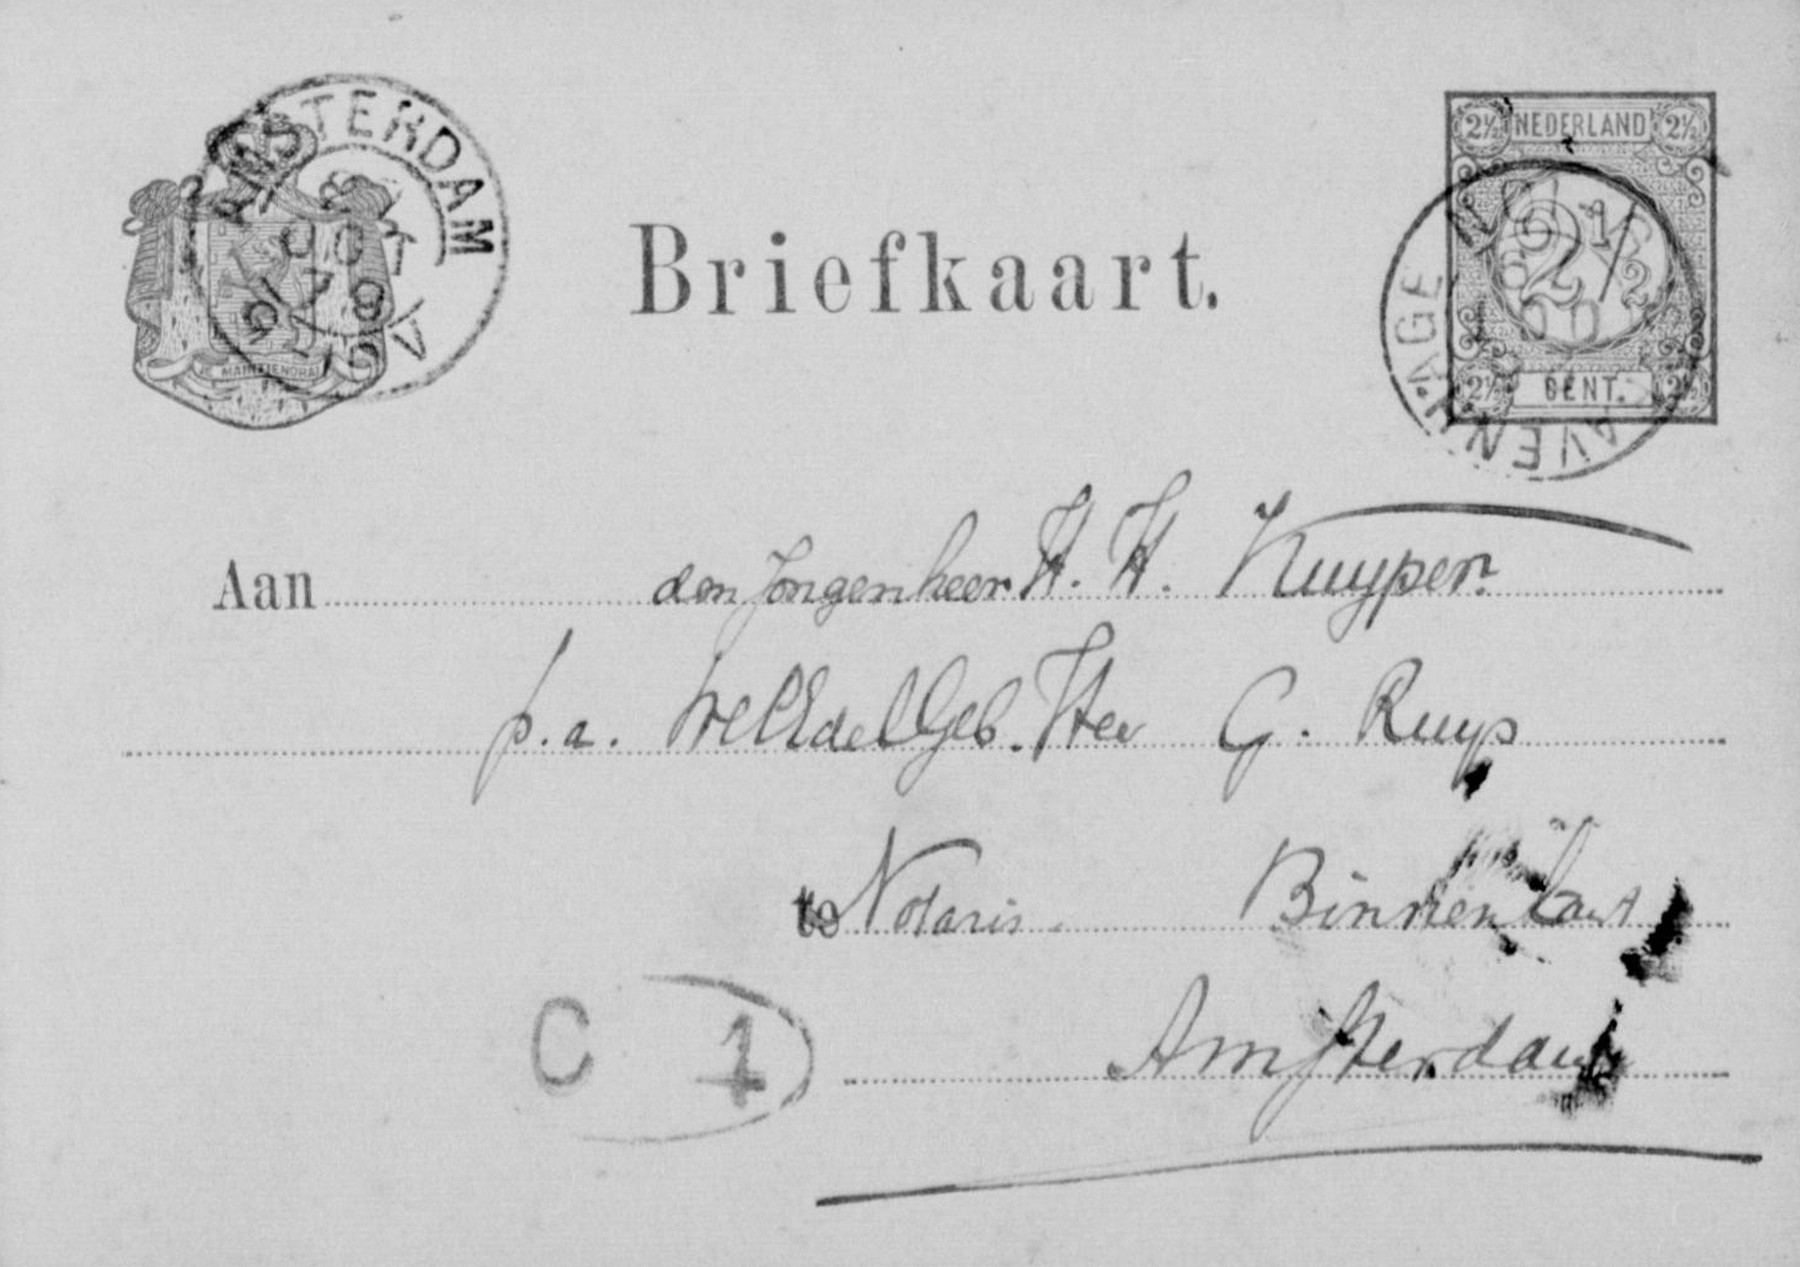 AMSTERDAM
OCT
79
JE MAINTIENDRAI
Briefkaart.
2½ NEDERLAND 2½
2½
2½ CENT. 2½
'S GRAVENHAGE
6
OCT
Aan den Jongenheer H. H. Kuyper.
p.a. WelEdelGeb. Heer G. Ruys
te Notaris. Binnenkant
Amsterdam
C 1